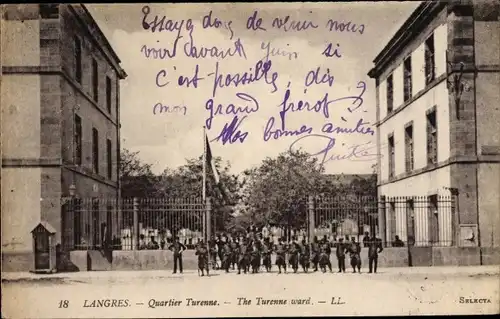 Essaye donc de venir nous
voir avant Juin si
c'est possible, dis
mon grand frérot ?
Mes bonnes amitiés
18 LANGRES. - Quartier Turenne. - The Turenne ward. - LL.
SELECTA